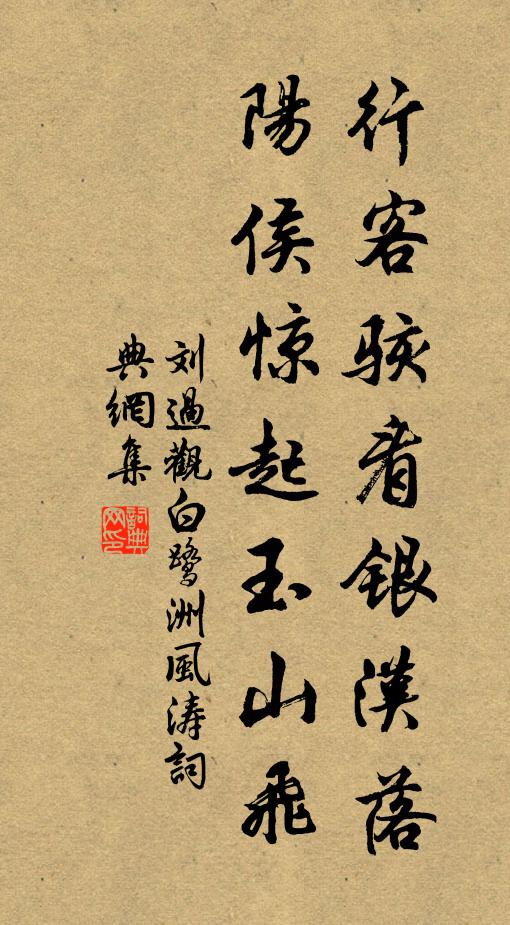 行客骇看银漢落
陽侯惊起玉山飛
刘過觀白鹭洲風涛詞
典網集
詞典網印